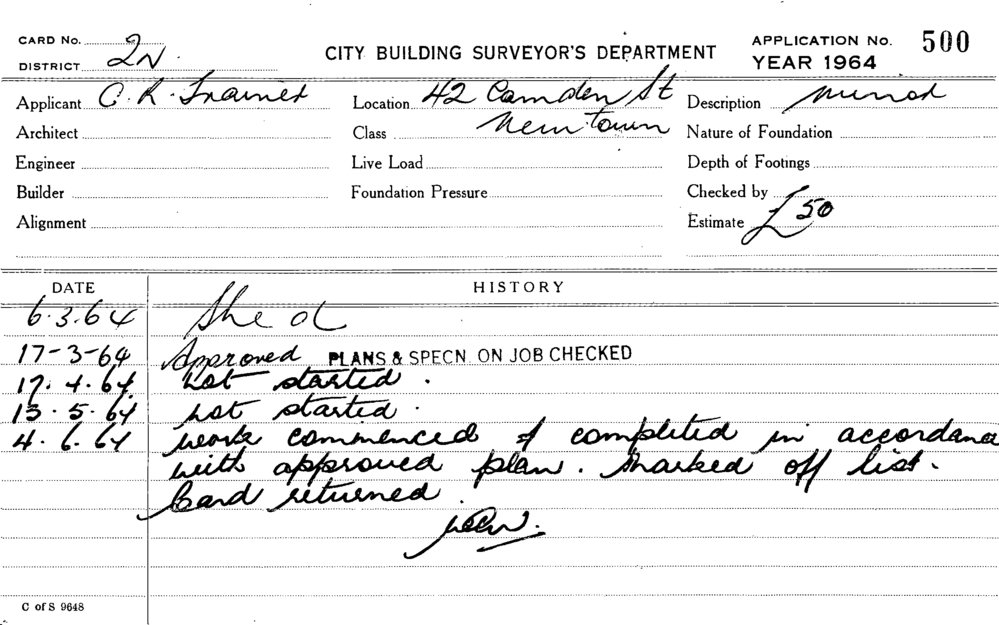 CARD No.
DISTRICT 2N
CITY BUILDING SURVEYOR'S DEPARTMENT
APPLICATION No. 500
YEAR 1964
Applicant C. R. Trainer
Location 42 Camden St
Description Minor
Architect
Class Newtown
Nature of Foundation
Engineer
Live Load
Depth of Footings
Builder
Foundation Pressure
Checked by
Alignment
Estimate £50
DATE HISTORY
6.3.64 Shed
17-3-64 Approved PLANS & SPECN. ON JOB CHECKED
17.4.64 not started.
13.5.64 not started.
4.6.64 work commenced & completed in accordance
with approved plan. Marked off list.
Card returned.
C of S 9648